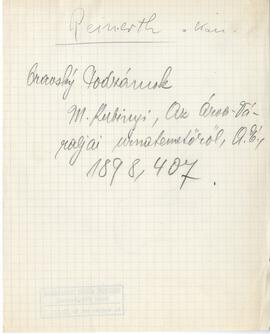 Reinerth
Oravský Podzámok
M. Kubinyi, Az árva-vá-
raljai urnatemetőről, A. É.,
1898, 407.